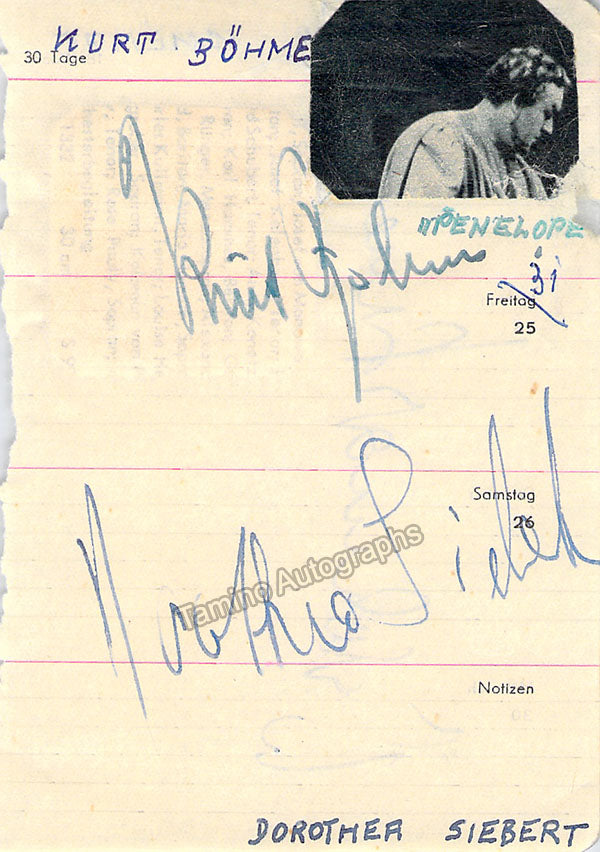 KURT BÖHME
30 Tage
PENELOPE
Kurt Böhme
31
Freitag
25
Samstag
26
Tamino Autographs
Dorothea Siebert
Notizen
DOROTHEA SIEBERT